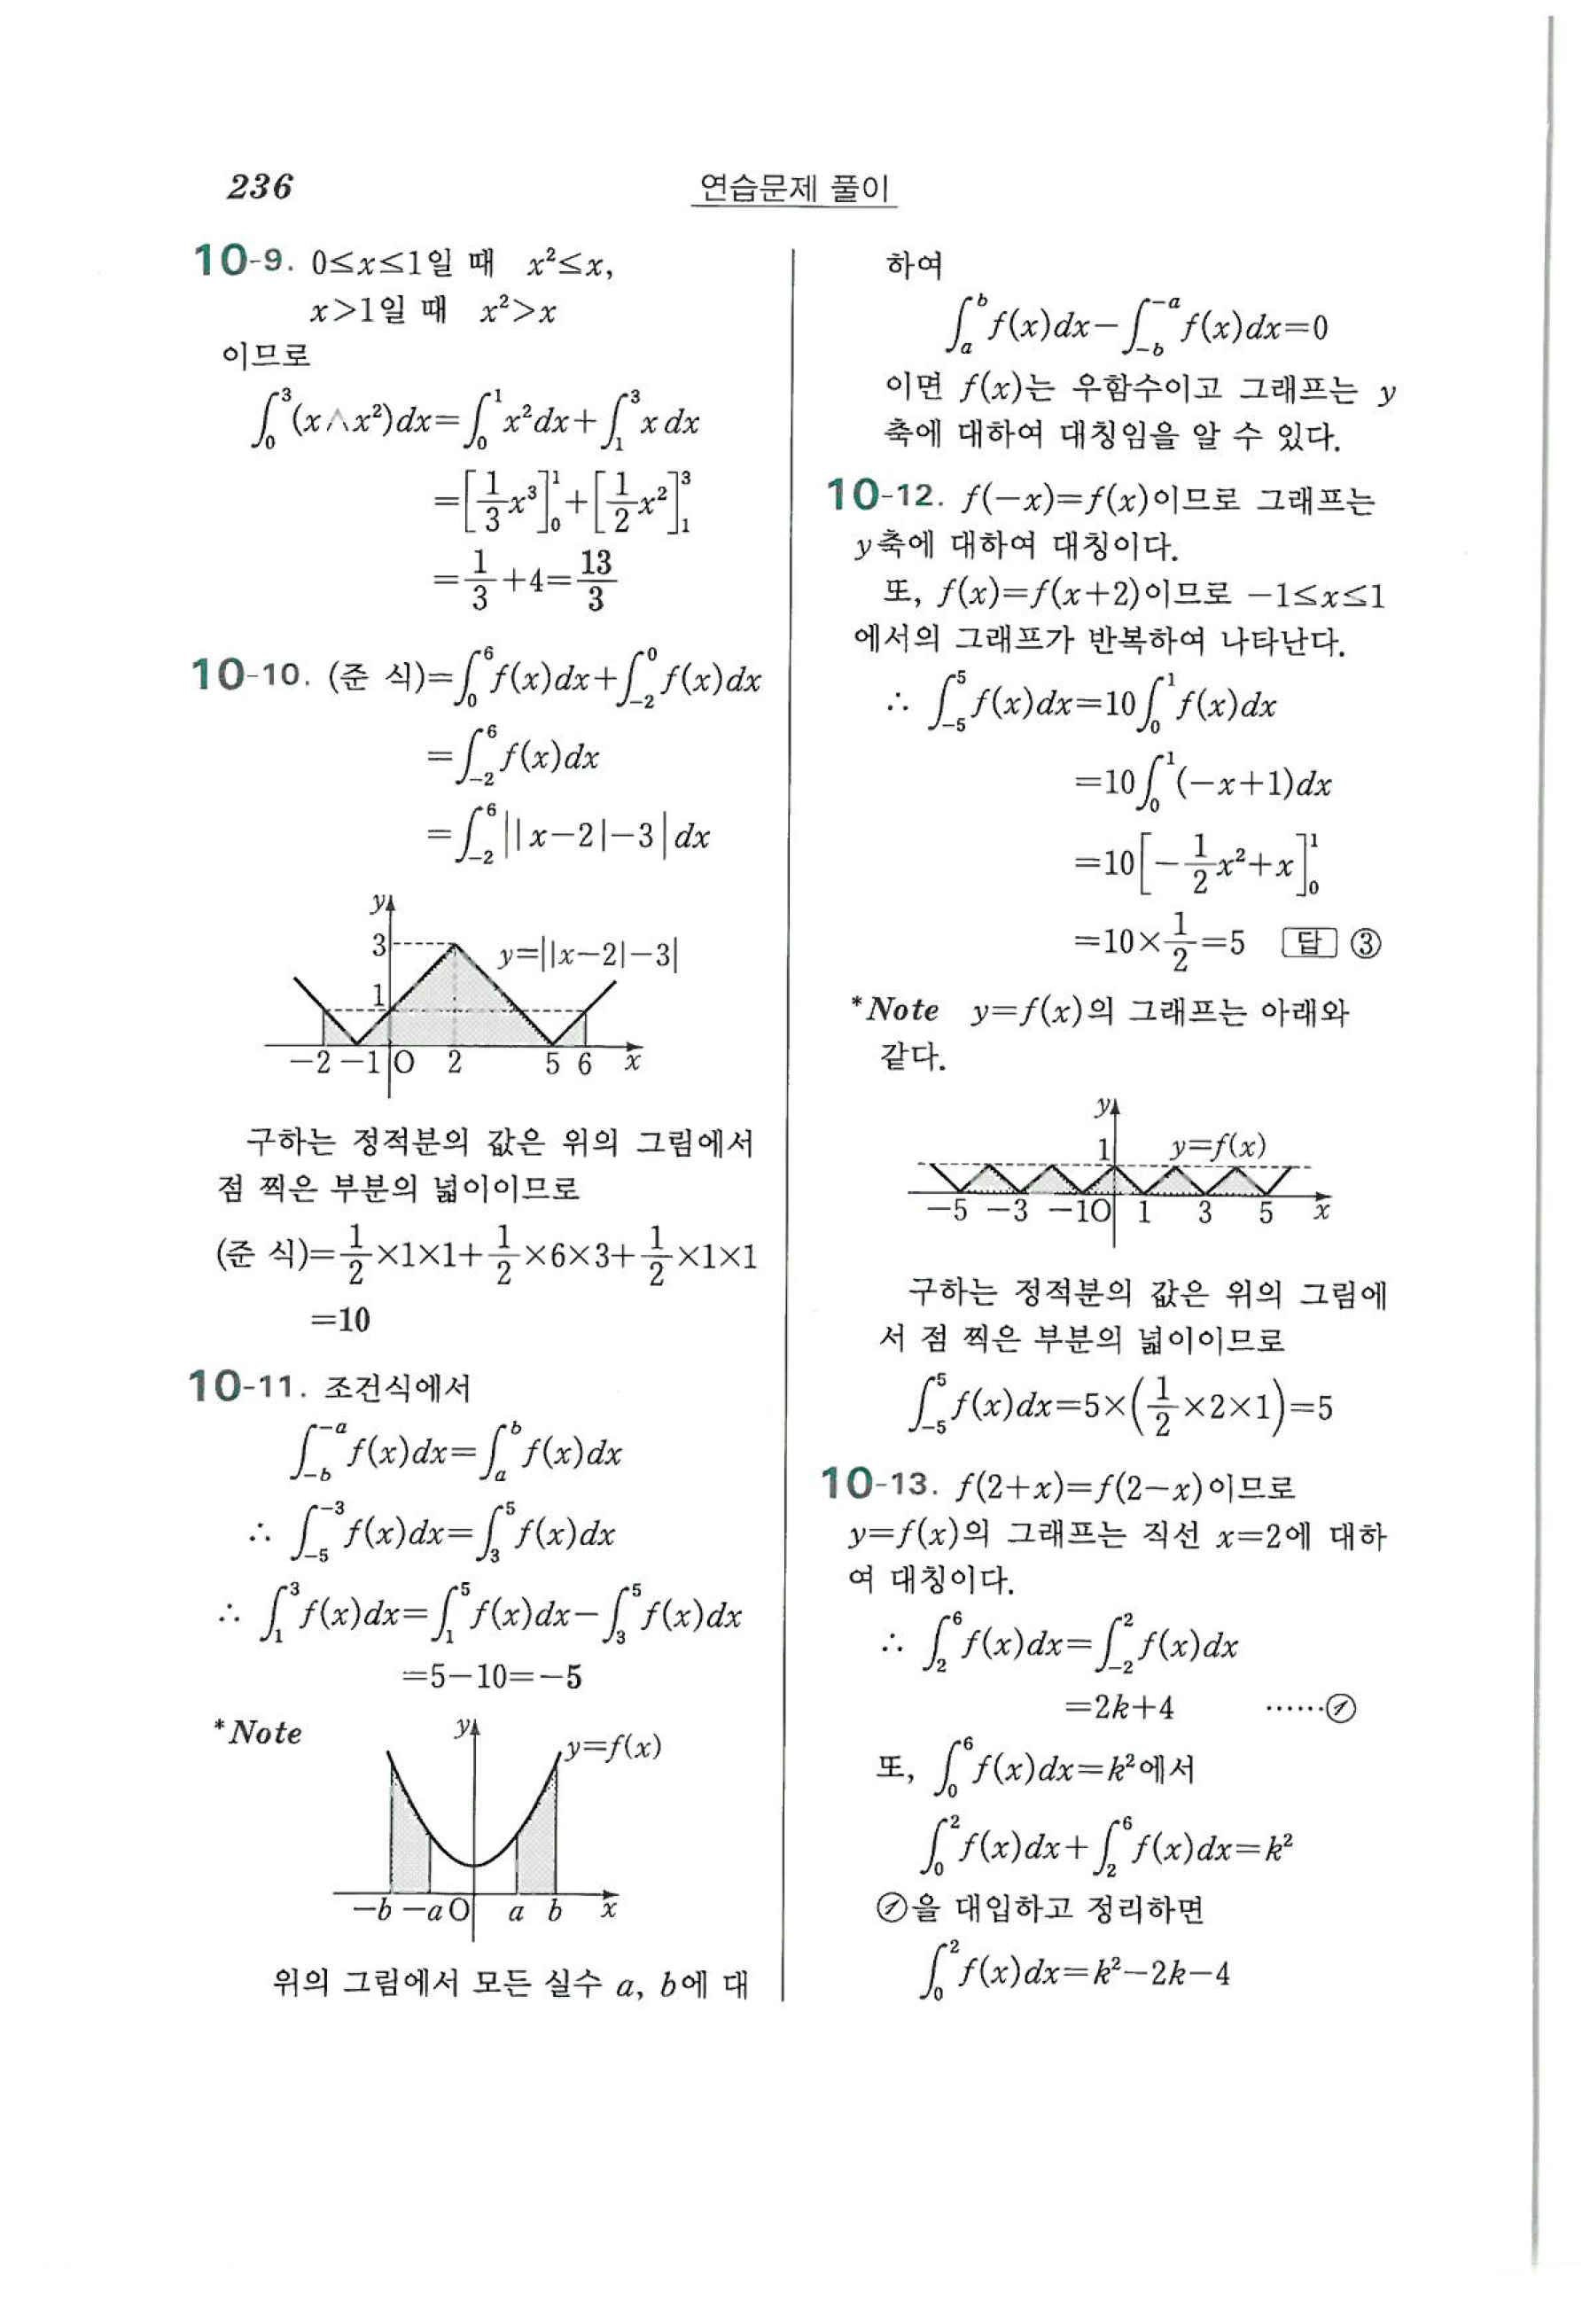 236
연습문제 풀이
10-9. 0≤x≤1일 때 x²≤x,
x>1일 때 x²>x
이므로
∫₀³(x∧x²)dx=∫₀¹x²dx+∫₁³x dx
=[1/3 x³]₀¹+[1/2 x²]₁³
=1/3+4=13/3
10-10. (준 식)=∫₀⁶f(x)dx+∫₋₂⁰f(x)dx
=∫₋₂⁶f(x)dx
=∫₋₂⁶||x-2|-3|dx
y
3
y=||x-2|-3|
1
-2 -1 O 2 5 6 x
구하는 정적분의 값은 위의 그림에서
점 찍은 부분의 넓이이므로
(준 식)=1/2×1×1+1/2×6×3+1/2×1×1
=10
10-11. 조건식에서
∫₋b⁻ᵃf(x)dx=∫ₐᵇf(x)dx
∴ ∫₋₅⁻³f(x)dx=∫₃⁵f(x)dx
∴ ∫₁³f(x)dx=∫₁⁵f(x)dx-∫₃⁵f(x)dx
=5-10=-5
*Note
y
y=f(x)
-b -a O a b x
위의 그림에서 모든 실수 a, b에 대
하여
∫ₐᵇf(x)dx-∫₋b⁻ᵃf(x)dx=0
이면 f(x)는 우함수이고 그래프는 y
축에 대하여 대칭임을 알 수 있다.
10-12. f(-x)=f(x)이므로 그래프는
y축에 대하여 대칭이다.
또, f(x)=f(x+2)이므로 -1≤x≤1
에서의 그래프가 반복하여 나타난다.
∴ ∫₋₅⁵f(x)dx=10∫₀¹f(x)dx
=10∫₀¹(-x+1)dx
=10[-1/2 x²+x]₀¹
=10×1/2=5 답 ③
*Note y=f(x)의 그래프는 아래와
같다.
y
1
y=f(x)
-5 -3 -1 O 1 3 5 x
구하는 정적분의 값은 위의 그림에
서 점 찍은 부분의 넓이이므로
∫₋₅⁵f(x)dx=5×(1/2×2×1)=5
10-13. f(2+x)=f(2-x)이므로
y=f(x)의 그래프는 직선 x=2에 대하
여 대칭이다.
∴ ∫₂⁶f(x)dx=∫₋₂²f(x)dx
=2k+4 ······㉠
또, ∫₀⁶f(x)dx=k²에서
∫₀²f(x)dx+∫₂⁶f(x)dx=k²
㉠을 대입하고 정리하면
∫₀²f(x)dx=k²-2k-4